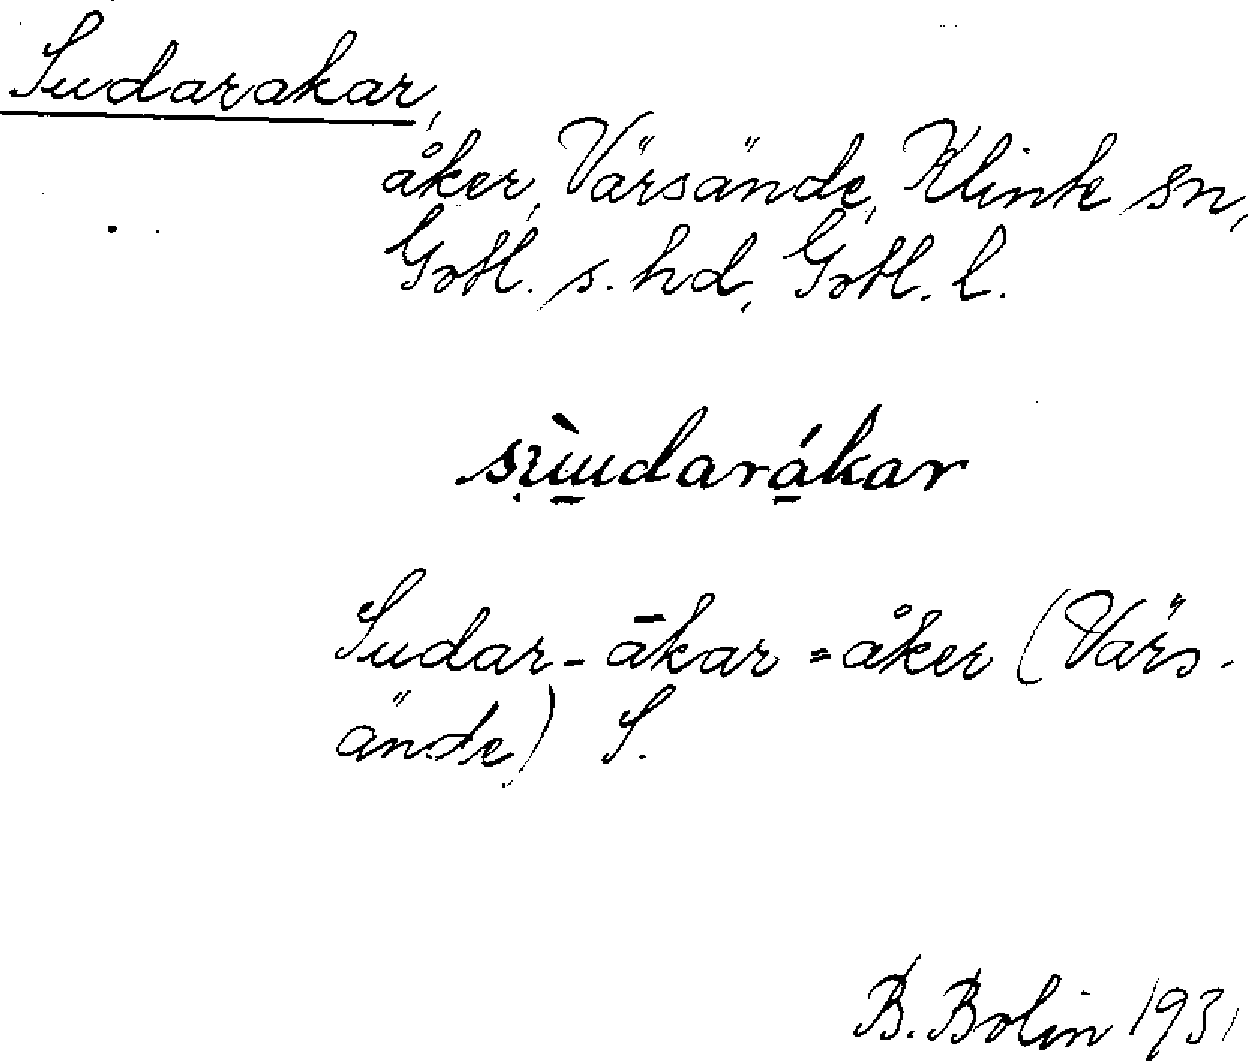 Sudarakar,
åker, Värsände, Klinte sn,
Gotl. s. hd, Gotl. l.
Sudar-ākar = åker (Värs-
ände) S.
B. Bolin 1931